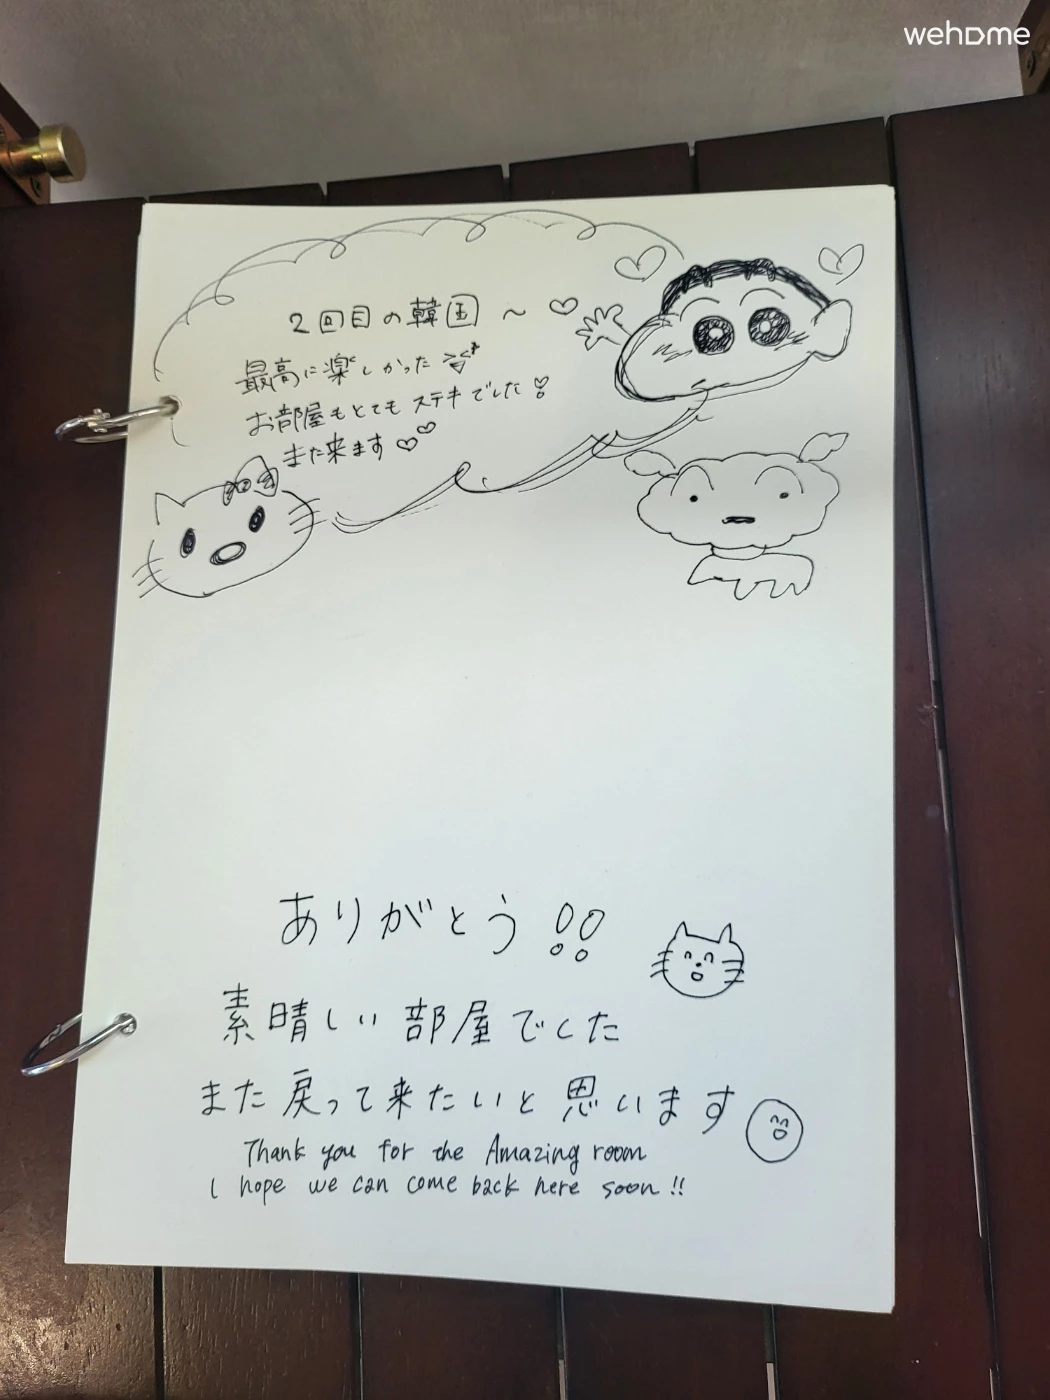 wehome
2回目の韓国～♡
最高に楽しかった
お部屋もとてもステキでした
また来ます♡♡
ありがとう!!
素晴しい部屋でした
また戻って来たいと思います
Thank you for the Amazing room
I hope we can come back here soon!!